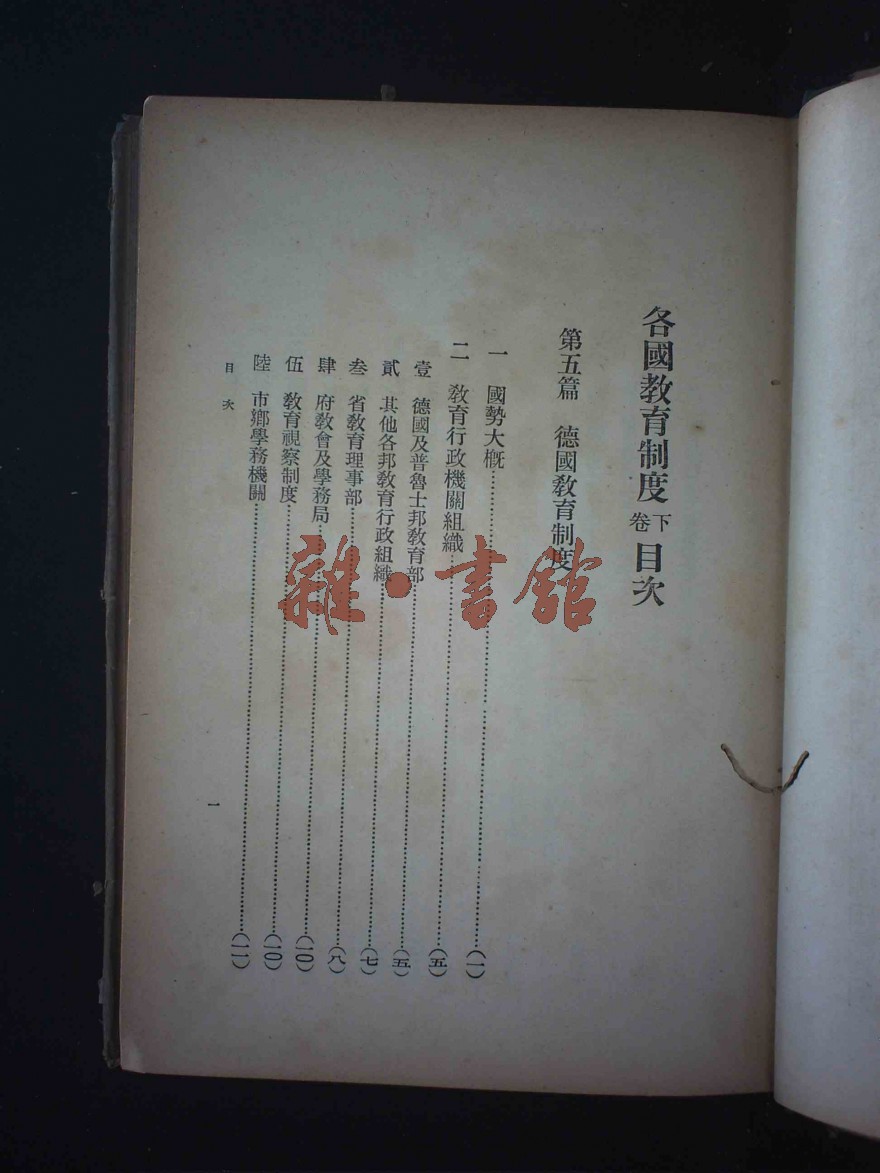 各國教育制度 下卷 目次
第五篇 德國教育制度
一 國勢大概……(一)
二 教育行政機關組織……(五)
壹 德國及普魯士邦教育部……(五)
貳 其他各邦教育行政組織……(七)
叁 省教育理事部……(八)
肆 府教會及學務局……(一〇)
伍 教育視察制度……(一〇)
陸 市鄉學務機關……(一一)
目次
一
雜·書館